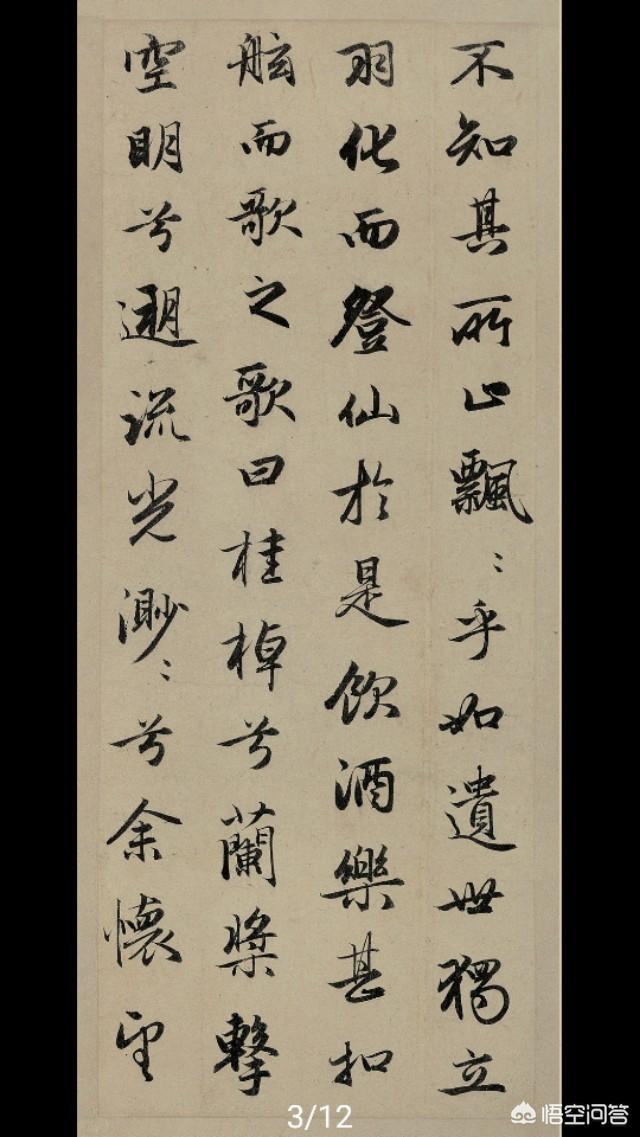 不知其所止飄〻乎如遺世獨立
羽化而登仙於是飲酒樂甚扣
舷而歌之歌曰桂棹兮蘭槳擊
空明兮遡流光渺〻兮余懷望
3/12
悟空问答